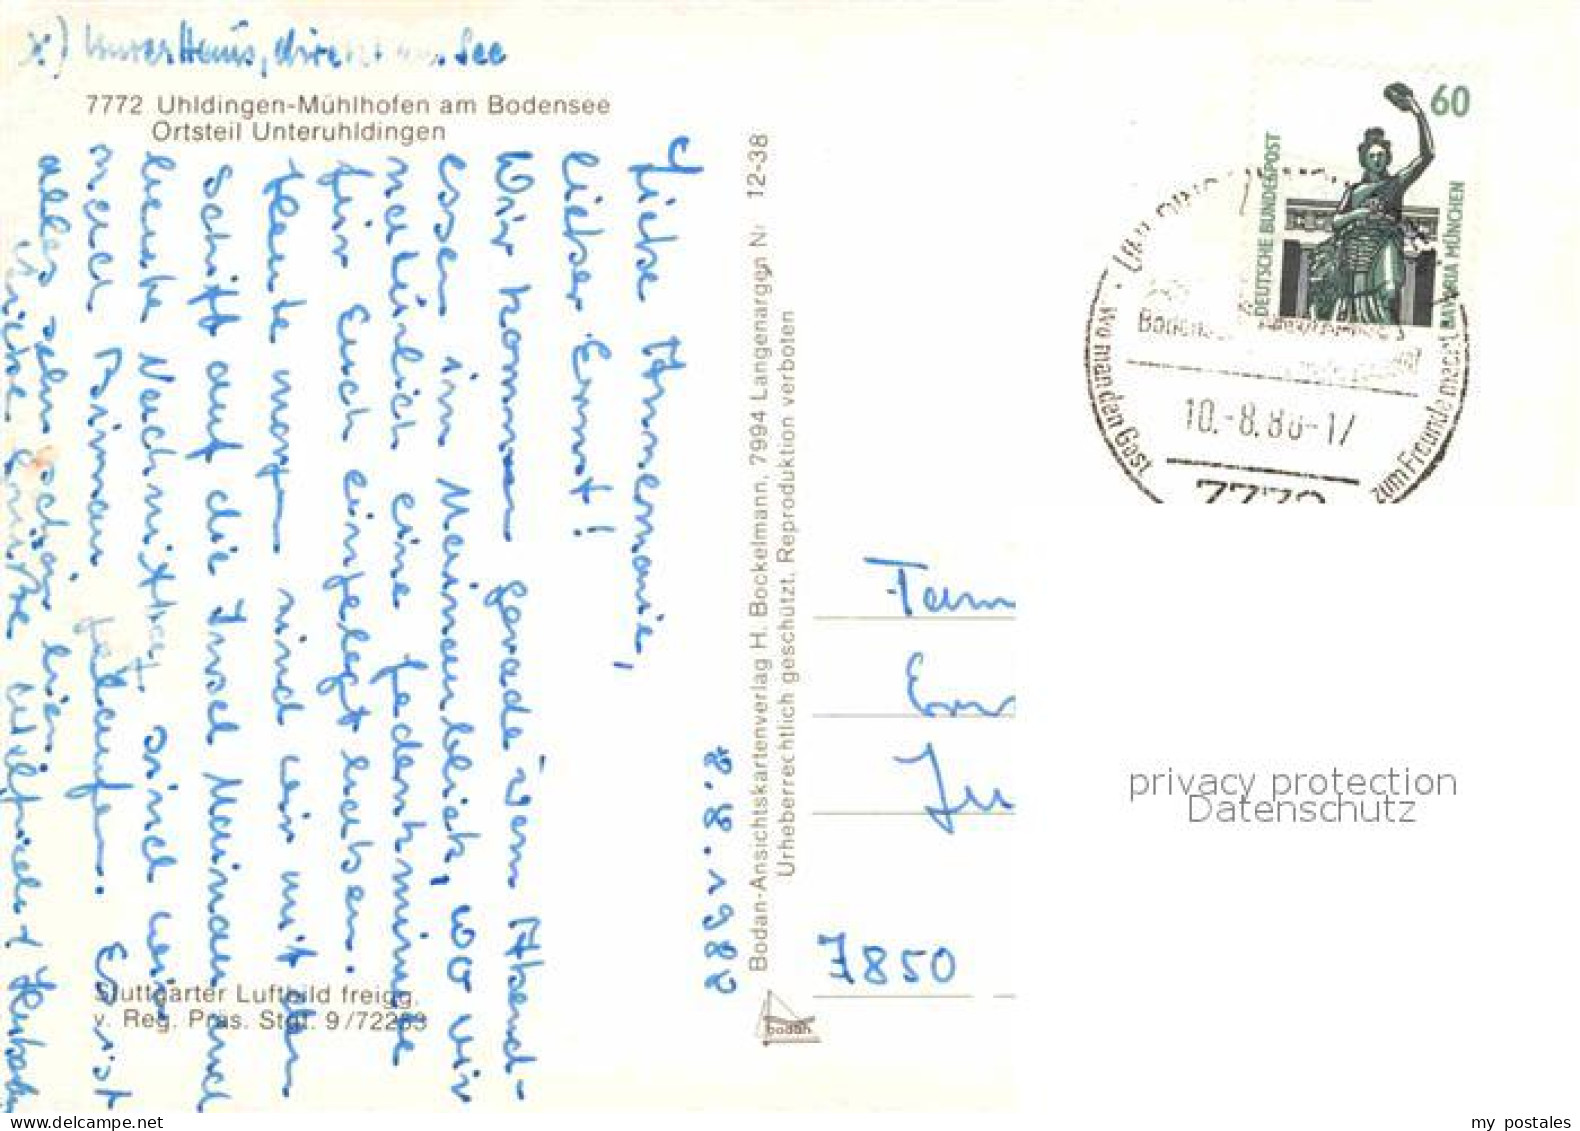 x) Unser Haus, direkt am See
7772 Uhldingen-Mühlhofen am Bodensee
Ortsteil Unteruhldingen
8.8.1988
Liebe Annemarie,
lieber Ernst!
Wir kommen gerade vom Abend-
essen im Mainaublick, wo wir
natürlich eine Gedenkminute
für Euch eingelegt haben.
Heute morgen sind wir mit dem
Schiff auf die Insel Mainau und
heute Nachmittag sind wir
nach Birnau gelaufen. Es ist
alles sehr schön hier.
Liebe Grüße Wilfried +
Stuttgarter Luftbild freigg.
v. Reg. Präs. Stgt. 9/72253
Bodan-Ansichtskartenverlag H. Bockelmann, 7994 Langenargen Nr 12-38
Urheberrechtlich geschützt. Reproduktion verboten
bodan
60
DEUTSCHE BUNDESPOST
BAVARIA MÜNCHEN
Wo man den Gast zum Freunde macht
10.-8.88-17
Fam
Ern
Ju
7850
privacy protection
Datenschutz
www.delcampe.net
my postales